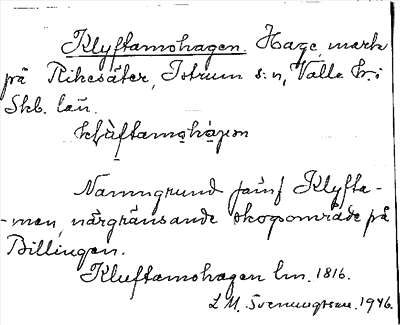 Klyftamohagen. Hage, mark
på Rikesäter, Istrum s:n, Valle hd i
Skb. län.
Namngrund jämf Klyfta-
-men, närgränsande skogsområde på
Billingen.
Kluftamohagen lm. 1816.
L.M. Svenungsson. 1946.